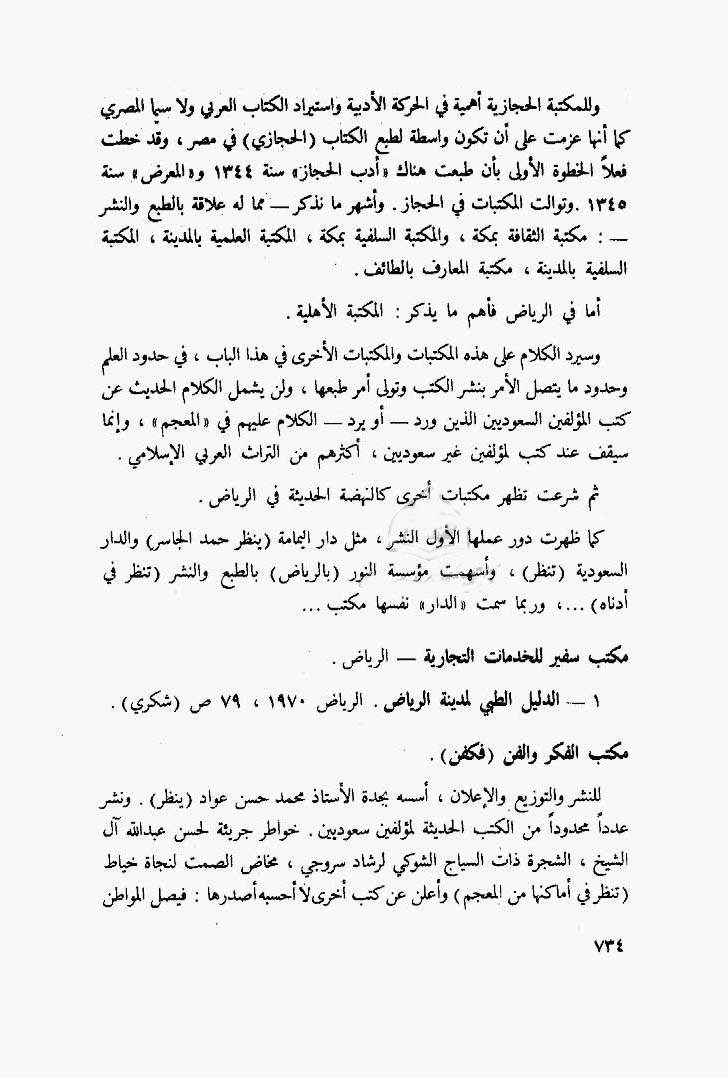 وللمكتبة الحجازية أهمية في الحركة الأدبية واستيراد الكتاب العربي ولا سيما المصري
كما أنها عزمت على أن تكون واسطة لطبع الكتاب (الحجازي) في مصر ، وقد خطت
فعلاً الخطوة الأولى بأن طبعت هناك «أدب الحجاز» سنة ١٣٤٤ و«المعرض» سنة
١٣٤٥ .وتوالت المكتبات في الحجاز . وأشهر ما نذكر — مما له علاقة بالطبع والنشر
— : مكتبة الثقافة بمكة ، والمكتبة السلفية بمكة ، المكتبة العلمية بالمدينة ، المكتبة
السلفية بالمدينة ، مكتبة المعارف بالطائف .
أما في الرياض فأهم ما يذكر : المكتبة الأهلية .
وسيرد الكلام على هذه المكتبات والمكتبات الأخرى في هذا الباب ، في حدود العلم
وحدود ما يتصل الأمر بنشر الكتب وتولى أمر طبعها ، ولن يشمل الكلام الحديث عن
كتب المؤلفين السعوديين الذين ورد — أو يرد — الكلام عليهم في «المعجم» ، وإنما
سيقف عند كتب لمؤلفين غير سعوديين ، أكثرهم من التراث العربي الإسلامي .
ثم شرعت تظهر مكتبات أخرى كالنهضة الحديثة في الرياض .
كما ظهرت دور عملها الأول النشر ، مثل دار اليمامة (ينظر حمد الجاسر) والدار
السعودية (تنظر) ، وأسهمت مؤسسة النور (بالرياض) بالطبع والنشر (تنظر في
أدناه) ...، وربما سمت «الدار» نفسها مكتب ...
مكتب سفير للخدمات التجارية — الرياض .
١ — الدليل الطبي لمدينة الرياض . الرياض ١٩٧٠ ، ٧٩ ص (شكري) .
مكتب الفكر والفن (فكفن) .
للنشر والتوزيع والإعلان ، أسسه بجدة الأستاذ محمد حسن عواد (ينظر) . ونشر
عدداً محدوداً من الكتب الحديثة لمؤلفين سعوديين . خواطر جريئة لحسن عبدالله آل
الشيخ ، الشجرة ذات السياج الشوكي لرشاد سروجي ، مخاض الصمت لنجاة خياط
(تنظر في أماكنها من المعجم) وأعلن عن كتب أخرى لا أحسبه أصدرها : فيصل المواطن
٧٣٤